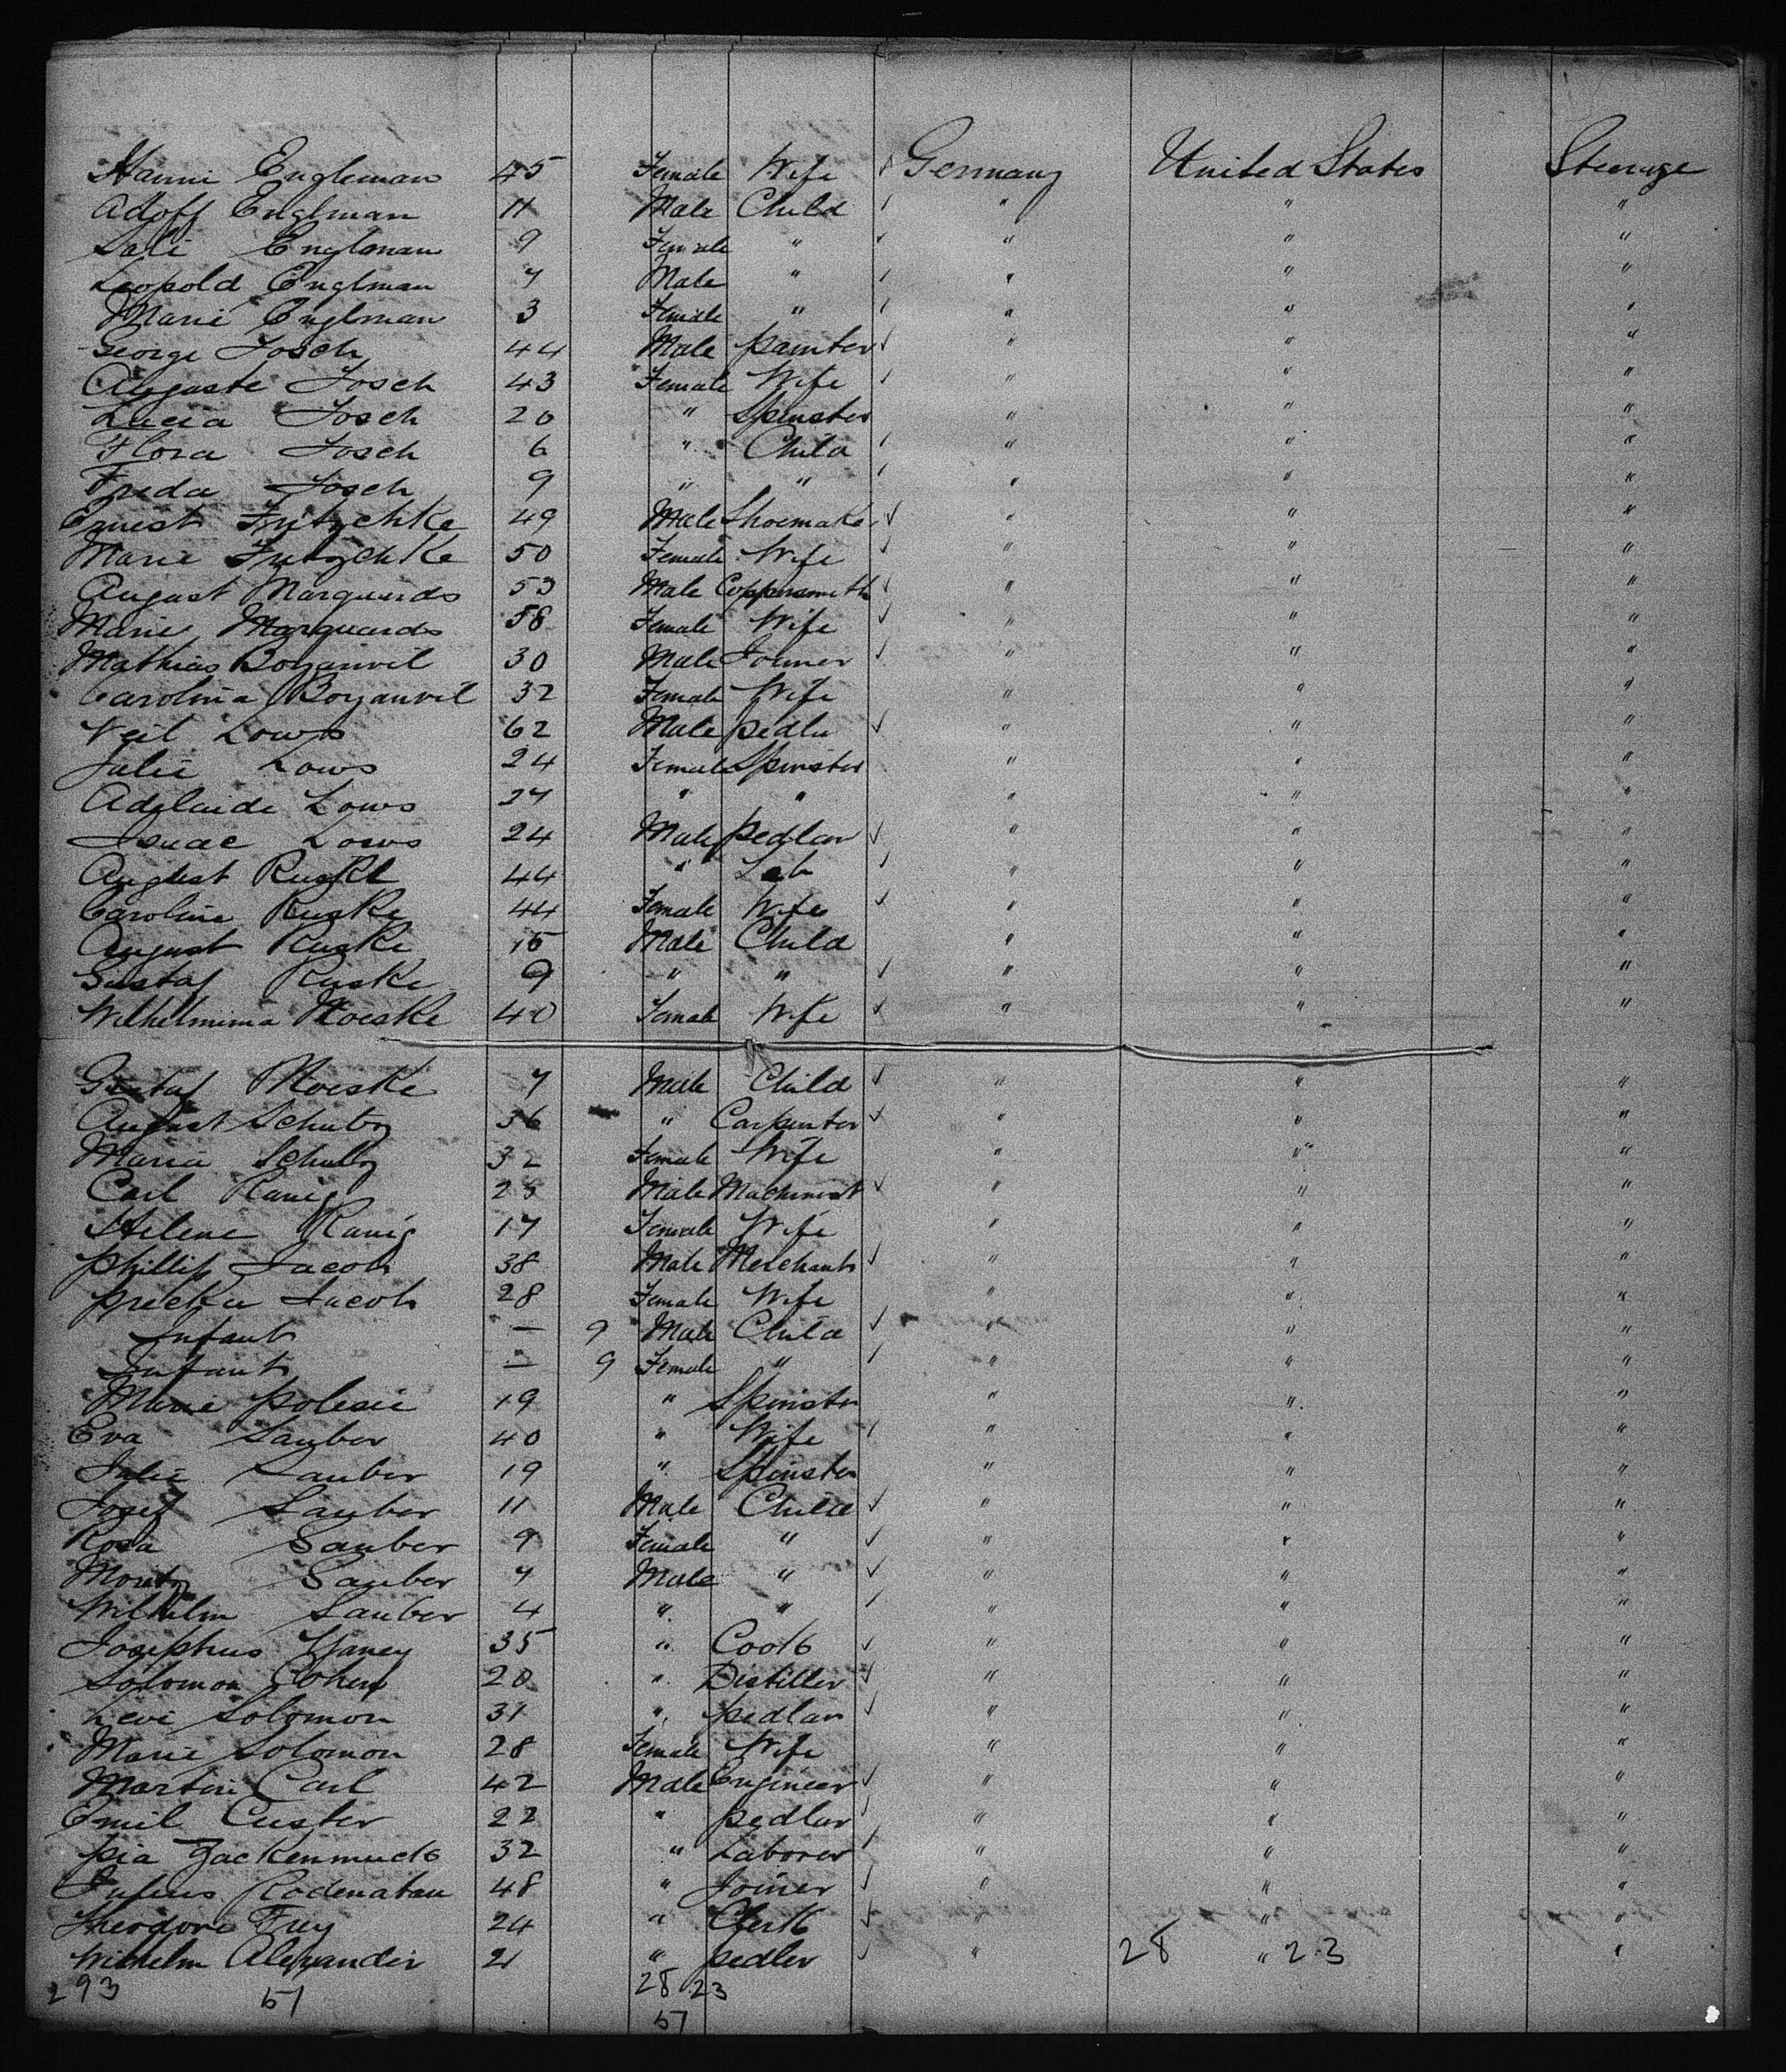 Hanni Engleman 45 Female Wife ✓ Germany United States Steerage
Adoff Englman 11 Male Child ✓ " " "
Sali Englman 9 Female " ✓ " " "
Leopold Englman 7 Male " ✓ " " "
Marie Englman 3 Female " ✓ " " "
George Josch 44 Male painter ✓ " " "
Auguste Josch 43 Female Wife ✓ " " "
Lucia Josch 20 " Spinster " " "
Flora Josch 6 " Child ✓ " " "
Freda Josch 9 " " ✓ " " "
Ernest Fritzchke 49 Male Shoemaker ✓ " " "
Marie Fritzchke 50 Female Wife ✓ " " "
August Marquards 53 Male Coppersmith ✓ " " "
Marie Marquards 58 Female Wife ✓ " " "
Mathias Bozanvil 30 Male Joiner ✓ " " "
Carolina Bozanvil 32 Female Wife " " "
Veil Lows 62 Male pedlar ✓ " " "
Julie Lows 24 Female Spinster " " "
Adelaide Lows 27 " " " " "
Isaac Lows 24 Male pedlar ✓ " " "
August Ruske 44 " Lab ✓ " " "
Caroline Ruske 44 Female Wife ✓ " " "
August Ruske 15 Male Child " " "
Gustaf Ruske 9 " " ✓ " " "
Wilhelmima Noeske 40 Female Wife ✓ " " "
Gustaf Noeske 7 Male Child ✓ " " "
August Schultz 36 " Carpenter ✓ " " "
Maria Schultz 32 Female Wife " " "
Carl Ranig 25 Male Machinist ✓ " " "
Helene Ranig 17 Female Wife " " "
Phillip Jacob 38 Male Merchant ✓ " " "
Jacob 28 Female Wife " " "
Infant — 9 Male Child ✓ " " "
Infant — 9 Female " ✓ " " "
Marie polesie 19 " Spinster " " "
Eva Sauber 40 " Wife ✓ " " "
Julie Sauber 19 " Spinster " " "
Josef Sauber 11 Male Child ✓ " " "
Rosa Sauber 9 Female " ✓ " " "
Moritz Sauber 7 Male " ✓ " " "
Wilhelm Sauber 4 " " ✓ " " "
Josephus 35 " Cook ✓ " " "
Solomon Cohen 20 " Distiller ✓ " " "
Levi Solomon 31 " pedlar ✓ " " "
Marie Solomon 28 Female Wife " " "
Martin Carl 42 Male Engineer ✓ " " "
Emil Custer 22 " pedlar ✓ " " "
pia Zackenmuck 32 " Laborer ✓ " " "
Julius Rodenatau 48 " Joiner ✓ " " "
Theodore Frey 24 " Clerk ✓ " " "
Wilhelm Alexander 21 " pedler ✓ " 28 " 23 "
293 51 28 23
51